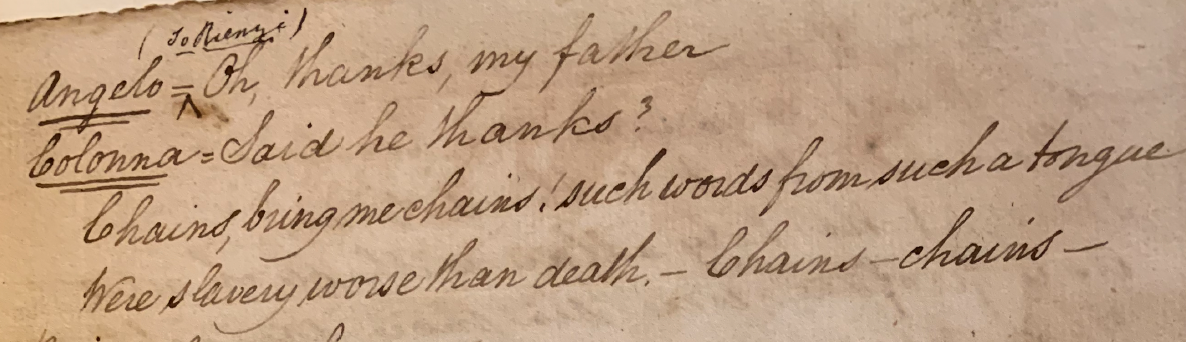 (To Rienzi)
Angelo = Oh, thanks, my father
Colonna = Said he thanks?
Chains, bring me chains! such words from such a tongue
Were slavery worse than death. – Chains – chains –